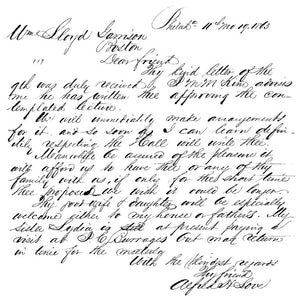 Philada 11th mo 19. 1863
Wm Lloyd Garrison
Boston
Dear friend
Thy kind letter of the
9th was duly received & J M McKim advises
me he has written thee approving the con-
templated lecture.
We will immediately make arrangements
for it, and so soon as I can learn defin-
itely respecting the Hall will write thee.
Meanwhile be assured of the pleasure it
will afford us to have thee or any of thy
family with us, if only for the short time
thee proposes. We wish it could be longer.
Thy good wife & daughter will be especially
welcome either to my house or fathers. My
sister Lydia is at present paying a
visit at J. E. but may return
in time for the meeting
With the kindest regards
Thy friend
Alfred H Love